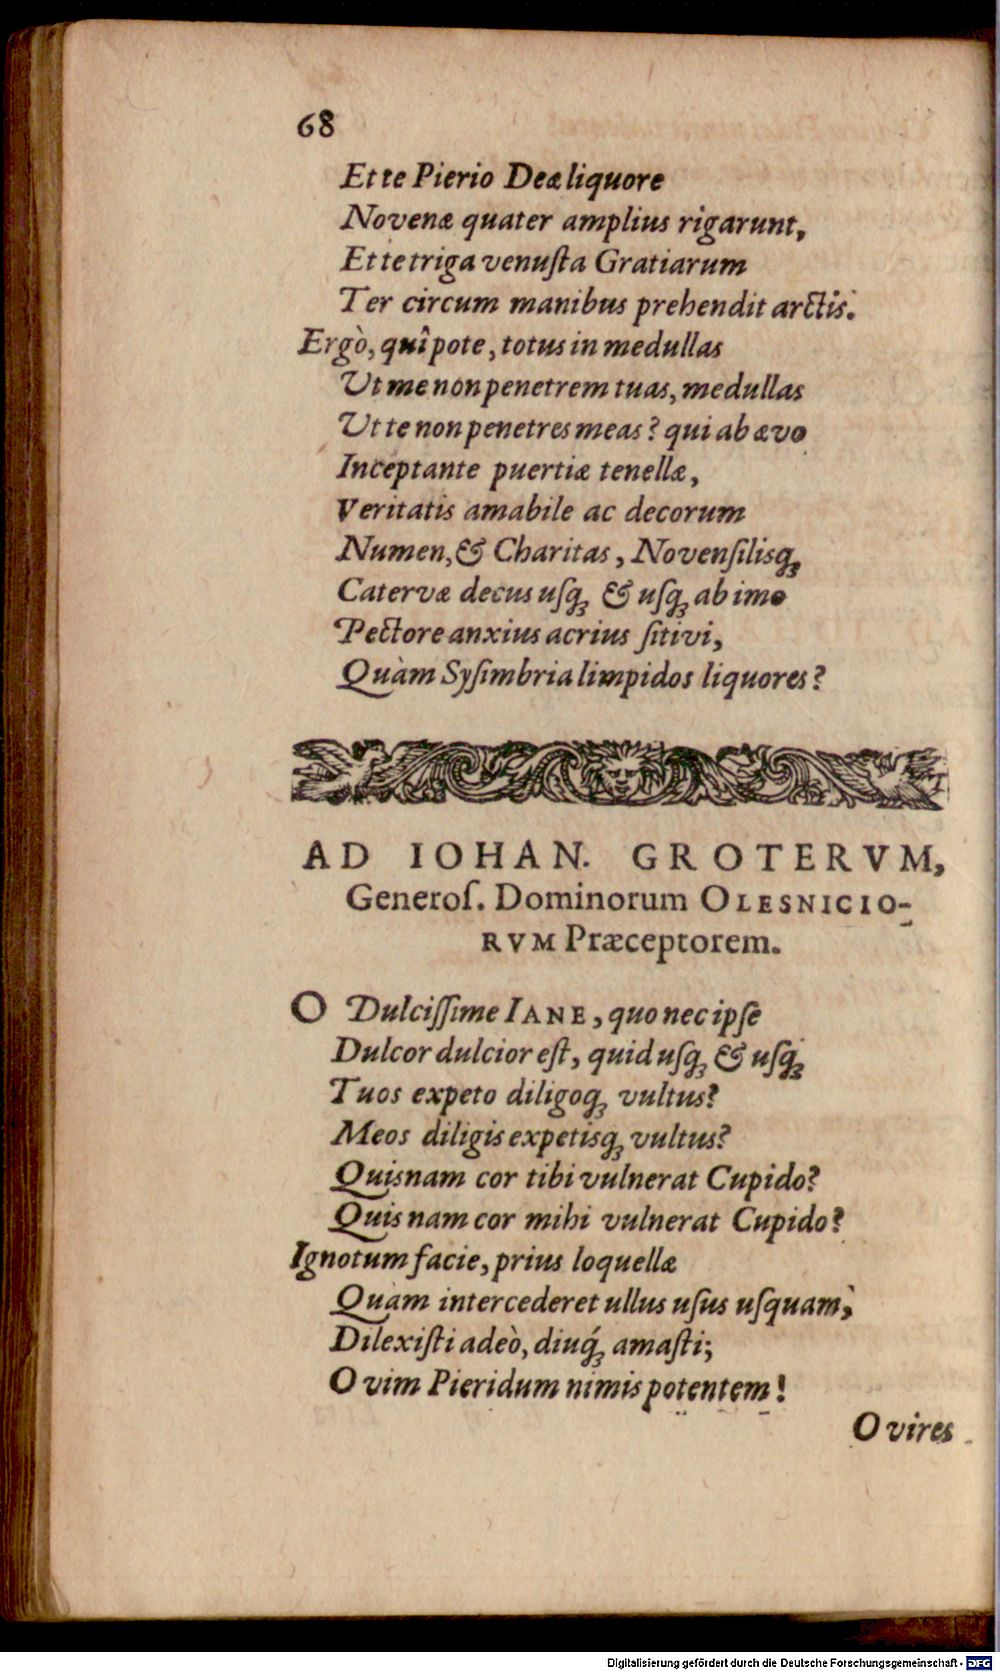 68
Et te Pierio Deæ liquore
Novenæ quater amplius rigarunt,
Et te triga venuſta Gratiarum
Ter circum manibus prehendit arctis.
Ergò, quî pote, totus in medullas
Ut me non penetrem tuas, medullas
Ut te non penetres meas? qui ab ævo
Inceptante puertiæ tenellæ,
Veritatis amabile ac decorum
Numen, & Charitas, Novenſilisq́;
Catervæ decus uſq; & uſq; ab imo
Pectore anxius acrius ſitivi,
Quàm Syſimbria limpidos liquores?
AD IOHAN. GROTERVM,
Generoſ. Dominorum OLESNICIO-
RVM Præceptorem.
O Dulciſſime IANE, quo nec ipſe
Dulcor dulcior eſt, quid uſq; & uſq;
Tuos expeto diligoq; vultus?
Meos diligis expetisq; vultus?
Quisnam cor tibi vulnerat Cupido?
Quisnam cor mihi vulnerat Cupido?
Ignotum facie, prius loquellæ
Quàm intercederet ullus uſus uſquam,
Dilexiſti adeò, diuq́; amaſti;
O vim Pieridum nimis potentem!
O vires
Digitalisierung gefördert durch die Deutsche Forschungsgemeinschaft - DFG